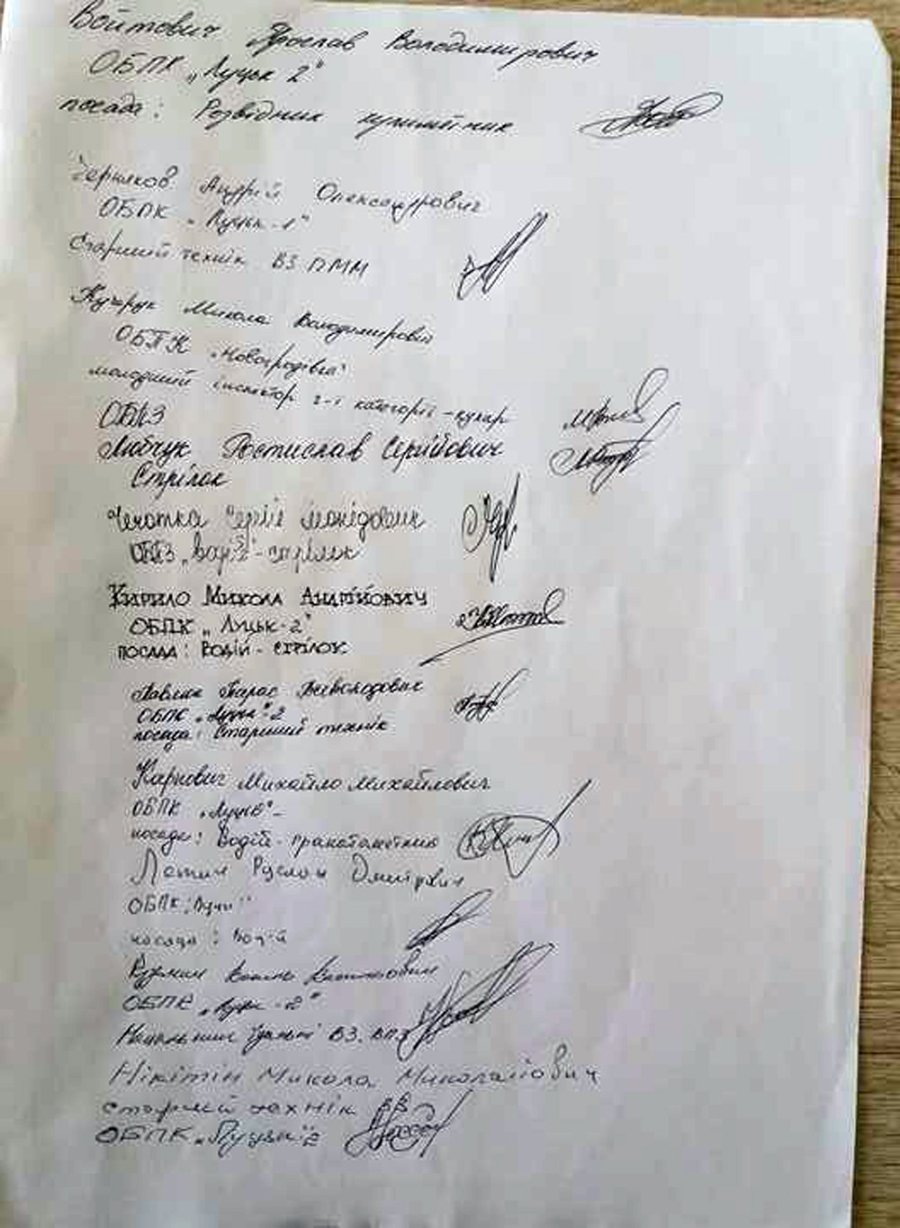 Войтович Ярослав Володимирович
ОБПК „Луцьк 2"
посада: Розвідник кулеметник
Черняков Андрій Олександрович
ОБПК „Луцьк-1"
Старший технік ВЗ ПММ
Кучарук Микола Володимирович
ОБПК „Новогродівка"
молодший інспектор 2-ї категорії - кухар
ОБТЗ
Ростислав Сергійович
Стрілок
Сергій
ОБТЗ „водій"-стрілок
Кирило Микола Андрійович
ОБПК „Луцьк-2"
посада: водій-стрілок
Павлик Тарас Всеволодович
ОБПК „Луцьк-2
посада: Старший технік
Карпович Михайло Михайлович
ОБПК „Луцьк"-
посада: Водій-гранатометник
Руслан Дмитрович
ОБПК „Луцьк"
посада: Водій
Василь
ОБПК „Луцьк-2"
Начальник їдальні ВЗ.
Нікітін Микола Миколайович
старший технік ВЗ
ОБПК „Луцьк"2